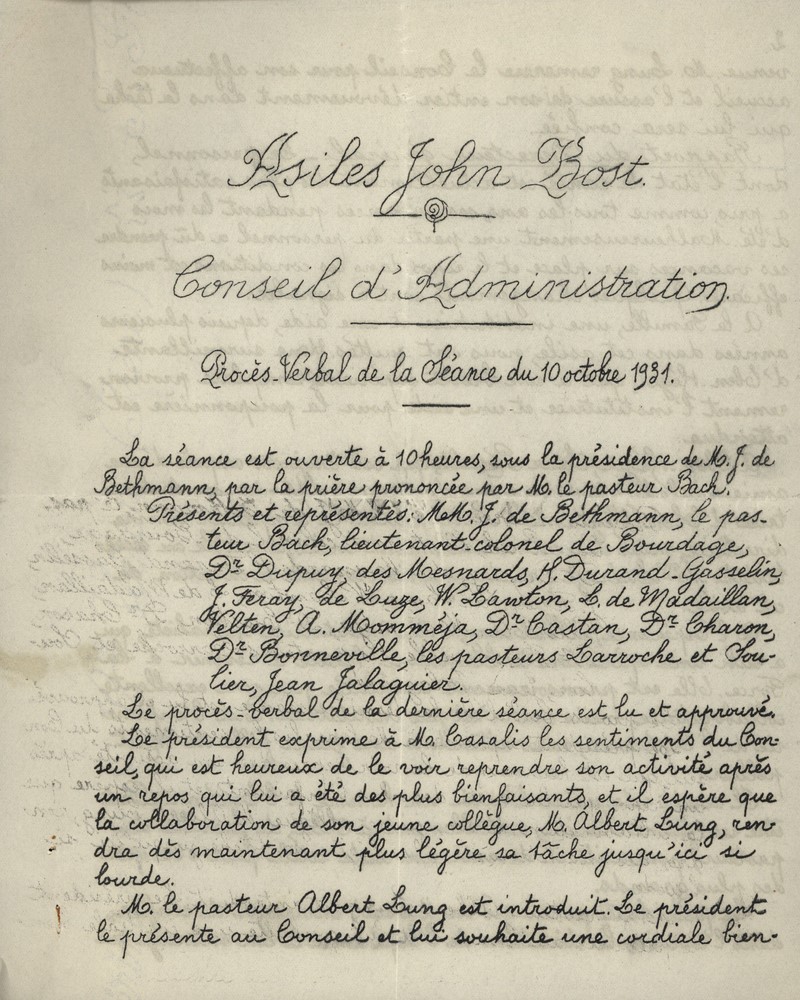 Asiles John Bost.
Conseil d'Administration
Procès-Verbal de la Séance du 10 octobre 1931.
La séance est ouverte à 10 heures, sous la présidence de M. J. de
Bethmann, par la prière prononcée par M. le pasteur Bach.
Présents et représentés: MM. J. de Bethmann, le pas-
teur Bach, lieutenant-colonel de Bourdage,
Dr Dupuy, des Mesnards, H. Durand-Gasselin,
J. Feray, de Luze, W. Lawton, L. de Madaillan,
Velten, A. Momméja, Dr Castan, Dr Charon,
Dr Bonneville, les pasteurs Larroche et Sou-
lier, Jean Jalaguier.
Le procès-verbal de la dernière séance est lu et approuvé.
Le président exprime à M. Casalis les sentiments du Con-
seil, qui est heureux de le voir reprendre son activité après
un repos qui lui a été des plus bienfaisants, et il espère que
la collaboration de son jeune collègue, M. Albert Lung, ren-
dra dès maintenant plus légère sa tâche jusqu'ici si
lourde.
M. le pasteur Albert Lung est introduit. Le président
le présente au Conseil et lui souhaite une cordiale bien-